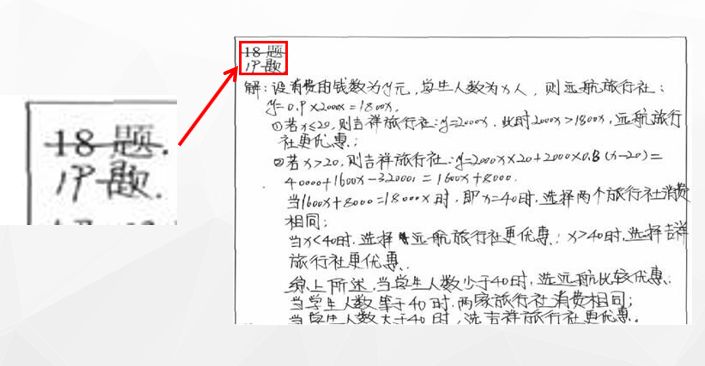 18题.
19题.
18题
19题.
解:设消费的钱数为y元,学生人数为x人,则远航旅行社:
y=0.9×2000x=1800x.
①若x≤20,则吉祥旅行社:y=2000x.此时2000x>1800x,远航旅行
社更优惠.;
②若x>20.则吉祥旅行社:y=2000×20+2000×0.8(x-20)=
40000+1600x-32000=1600x+8000.
当1600x+8000=1800x时,即x=40时.选择两个旅行社消费
相同;
当x<40时.选择远航旅行社更优惠;x>40时.选择吉祥
旅行社更优惠.
综上所述,当学生人数少于40时,选远航比较优惠;
当学生人数等于40时.两家旅行社消费相同;
当学生人数大于40时,选吉祥旅行社更优惠.